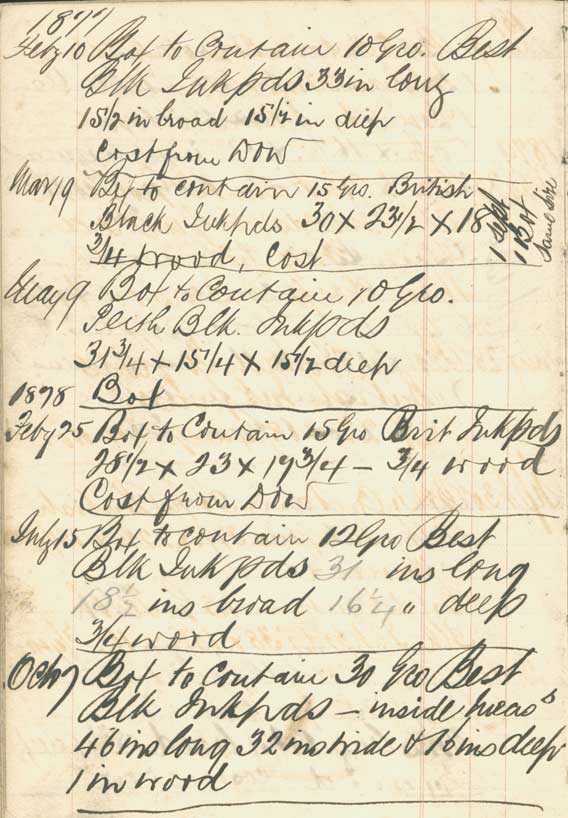 1877
Feby 10 Box to Contain 10 Gro. Best
Blk Inkpds 33 in long
15 1/2 in broad 15 1/2 in deep
Cost from DOW
Mar 19 Bx to contain 15 Gro. British
Black Inkpds 30 x 23 1/2 x 18
3/4 wood, Cost
1 Sept
1 Box
Same Size
May 9 Box to Contain 10 Gro.
Perth Blk. Inkpds
31 3/4 x 15 1/4 x 15 1/2 deep
1878 Box
Feby 25 Box to Contain 15 Gro Brit Inkpds
28 1/2 x 23 x 17 3/4 - 3/4 wood
Cost from DOW
July 15 Box to contain 12 Gro Best
Blk Inkpds 31 ins long
18 1/2 ins broad 16 1/4 " deep
3/4 wood
Oct 7 Box to contain 30 Gro Best
Blk Inkpds - inside meas s
46 ins long 32 ins wide & 16 ins deep
1 in wood